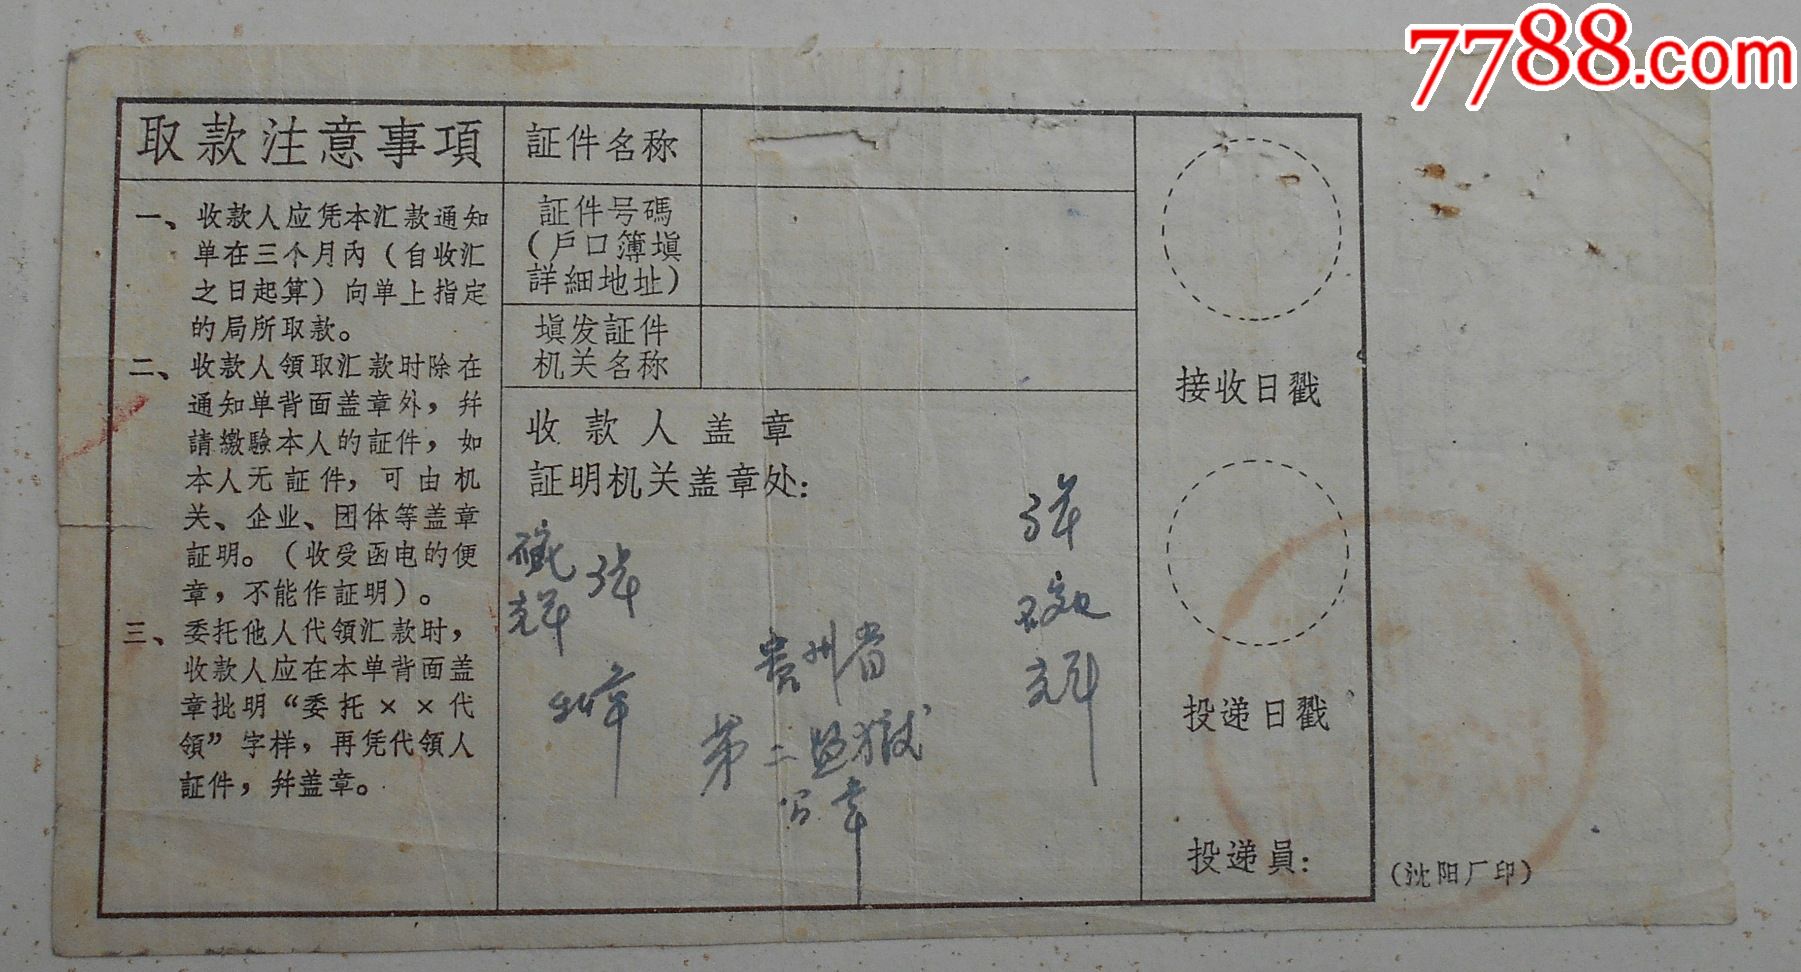 7788.com
取款注意事項
一、收款人应凭本汇款通知
单在三个月內（自收汇
之日起算）向单上指定
的局所取款。
二、收款人領取汇款时除在
通知单背面盖章外，幷
請繳驗本人的証件，如
本人无証件，可由机
关、企业、团体等盖章
証明。（收受函电的便
章，不能作証明）。
三、委托他人代領汇款时，
收款人应在本单背面盖
章批明“委托××代
領”字样，再凭代領人
証件，幷盖章。
証件名称
証件号碼
（戶口簿塡
詳細地址）
塡发証件
机关名称
收款人盖章
証明机关盖章处：
贵州省
第二监狱
公章
接收日戳
投递日戳
投递員：
（沈阳厂印）